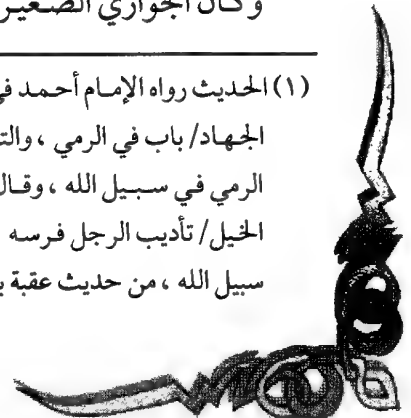 وكان الجواري الصغير
(١) الحديث رواه الإمام أحمد في
الجهاد/ باب في الرمي ، والت
الرمي في سبيل الله ، وقال
الخيل/ تأديب الرجل فرسه
سبيل الله ، من حديث عقبة ب